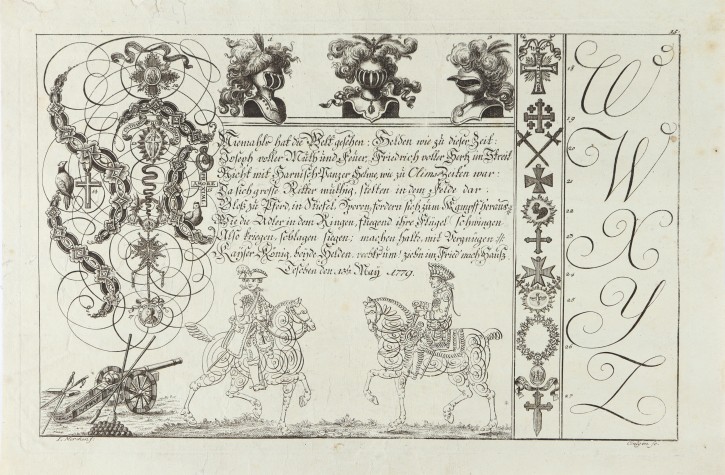 25.
Niemahls hat die Welt gesehen: Helden wie zu dieser Zeit:
Joseph voller Muth und Feuer, Friedrich voller Hertz im Streit
Nicht mit Harnisch Panzer Helme, wie zu Zeiten war:
Da sich große Ritter muthig, stelten in dem Felde dar.
Bloß zu Pferd, in Stiefel, Sporen, fordern sich zum Kampf heraus
Wie die Adler in dem Ringen, fliegend ihre Flügel schwingen
Also kriegen, schlagen siegen: machen halte, mit Vergnügen
Kayser König, beyde Helden, rechts um! ziehn im Fried nach Hauß
Teschen den 13t May 1779.
18
19
20
21
22
23
24
25
26
27
W
W
X
Y
Z